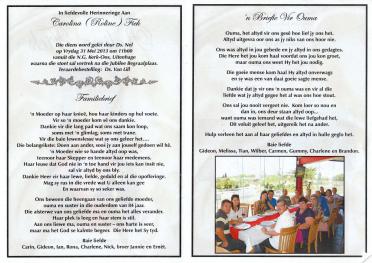 In liefdevolle Herinneringe Aan
Carolina (Roline) Fick
Die diens word gelei deur Ds. Nel
op Vrydag 31 Mei 2013 om 11h00
vanuit die N.G. Kerk-Ons, Uitenhage
waarna die stoet sal vertrek na die Jubilee Begrafplaas.
Teraardebestelling: Ds. Van Lill
Familiebrief
'n Moeder op haar knieë, hoe haar kinders op hul voete.
Vir so 'n moeder kom sê ons dankie.
Dankie vir die lang pad wat ons saam kon loop,
soms met 'n glimlag, soms met trane.
Vir die baie somers wat ons geniet het.....
Die belangrikste: Doen aan ander, sooi jy aan jouself gedoen wil hê.
'n Moeder wie se hande altyd oop was,
teenoor haar Skepper en teenoor haar medemens.
Haar leuse dat God nie in 'n toe hand vir jou iets kan insit nie,
sal vir altyd by ons bly.
Dankie Heer vir haar lewe, liefde, geduld en al die opofferinge.
Mag sy nou in die vrede wat U alleen kan gee
En waarvan sy so seker was.
Ons beween die heengaan van ons geliefde moeder,
ouma en suster in die ouderdom van 84 jaar.
Die afsterwe van ons geliefde ma en ouma het alles verander.
Haar plek is leeg en haar stem is stil.
Aan ons liewe ma, ouma en suster – ons harte is seer,
maar ma het God se kalmte begeer. Die Here het Sy tyd.
Baie liefde
Carin, Gideon, Ian, Rona, Charlene, Nick, broer Jannie en Ernët.
'n Briefie Vir Ouma
Ouma, het altyd vir ons gesê hoe lief jy ons het.
Altyd uitgesien oor ons as jy niks van ons hoor nie.
Ons was altyd in jou gebede en jy altyd in ons gedagtes.
Die Here het jou kom haal voordat ons jou kon groet,
maar ouma ons weet Hy het jou nodig.
Die goeie mense kom haal Hy altyd onverwags
en sy was een van daai goeie sagte mense.
Dankie dat jy vir ons 'n ouma was en vir al die
liefde wat jy altyd gegee het al was ons hoe stout.
Ons sal jou nooit vergeet nie. Kom keer so nou en
dan in, ons deur staan altyd oop...
want ouma was iemand wat die lewe liefgehad het,
Dit voluit geleef het, uitgereik het na ander.
Hulp verleen het aan al haar geliefdes en altyd in hulle geglo het.
Baie liefde
Gideon, Melissa, Tian, Wilber, Carmen, Gummy, Charlene en Brandon.